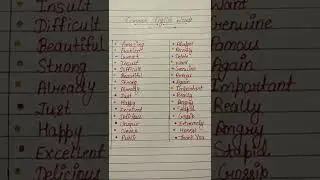 Common English Words
Amazing
Insult
Difficult
Beautiful
Strong
Already
Just
Happy
Excellent
Delicious
Unique
Simple
Public
Really
Want
Genuine
Famous
Again
Important
Really
Angry
Stupid
Gossip
Extremely
Honest
Thank You
Insult
Difficult
Beautiful
Strong
Already
Just
Happy
Excellent
Delicious
Genuine
Famous
Again
Important
Really
Angry
Stupid
Gossip